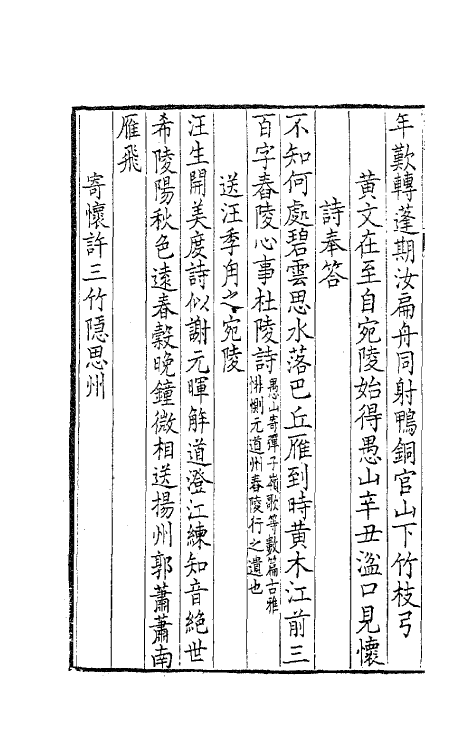 年歎轉蓬期汝扁舟同射鴨銅官山下竹枝弓
黄文在至自宛陵始得愚山辛丑湓口見懷
詩奉答
不知何處碧雲思水落巴丘雁到時黄木江前三
百字舂陵心事杜陵詩愚山寄彈子嶺歌等數篇古雅
悱惻元道州舂陵行之遺也
送汪季甪之宛陵
汪生開美度詩似謝元暉解道澄江練知音絕世
希陵陽秋色遠春穀晚鐘微相送揚州郭蕭蕭南
雁飛
寄懷許三竹隱思州